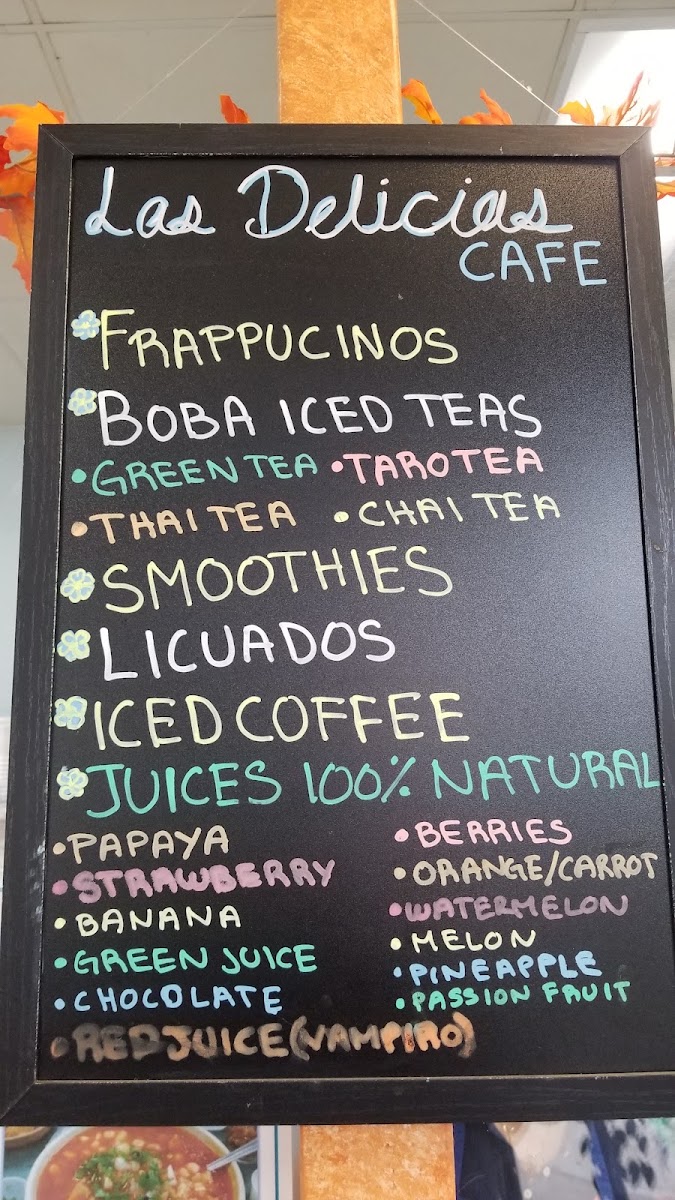 Las Delicias
CAFE
FRAPPUCINOS
BOBA ICED TEAS
•GREEN TEA •TARO TEA
•THAI TEA •CHAI TEA
SMOOTHIES
LICUADOS
ICED COFFEE
JUICES 100% NATURAL
•PAPAYA
•STRAWBERRY
•BANANA
•GREEN JUICE
•CHOCOLATE
•BERRIES
•ORANGE/CARROT
•WATERMELON
•MELON
•PINEAPPLE
•PASSION FRUIT
•RED JUICE (VAMPIRO)